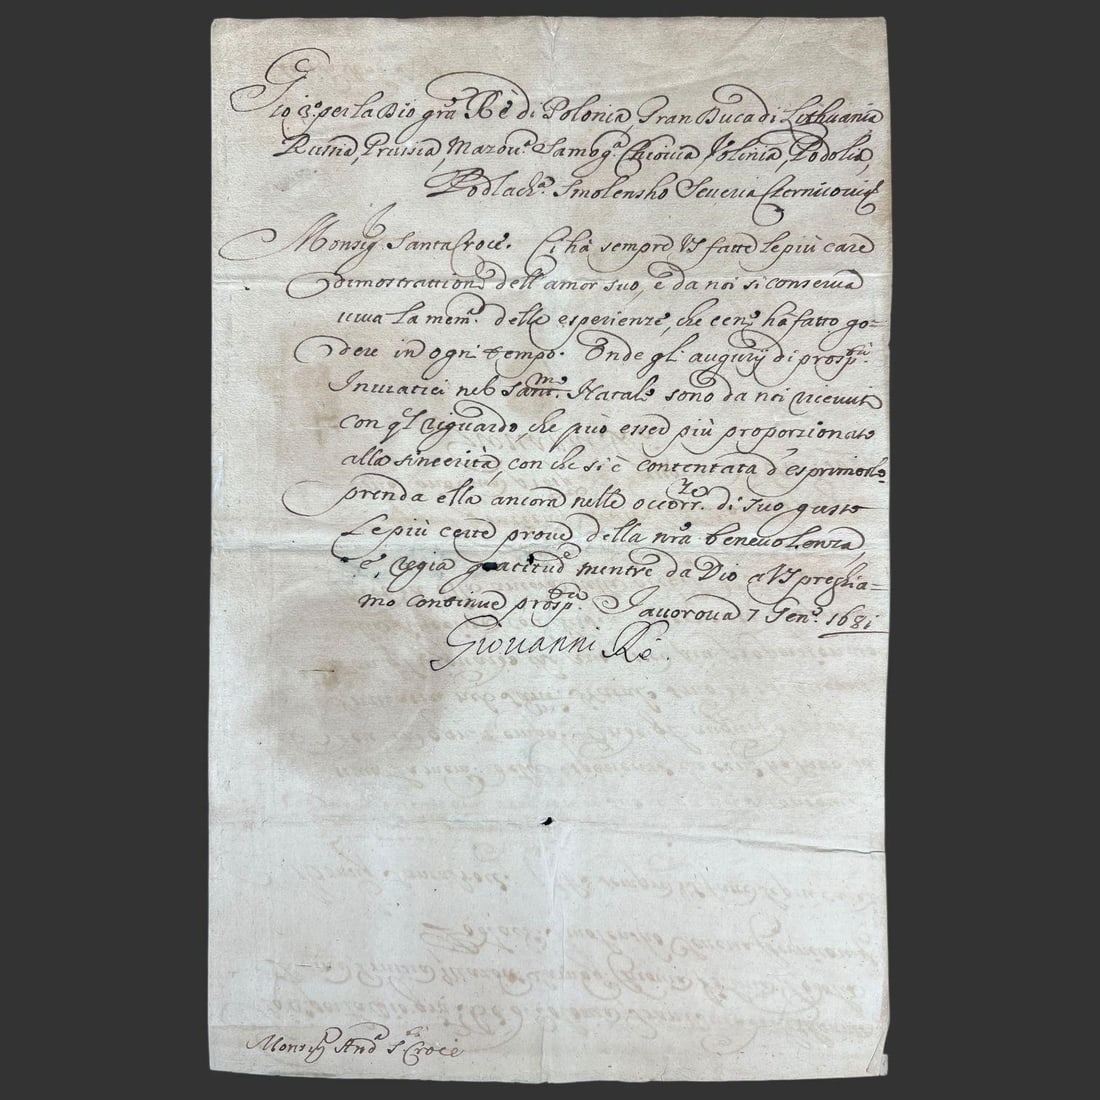 Gio 3.º per la Dio grã Rè di Polonia, Gran Duca di Lithuania
Russia, Prussia, Mazou.ª Samog.ª Chiouia Volinia, Podolia,
Podlach.ª Smolensho Seueria Czernicouia
Monsig.r Santa Croce. Ci hà sempre VS fatte le più care
dimostrationi dell'amor suo, e da noi si conserua
uiua la mem.ª delle esperienze, che cene hà fatto go=
dere in ogni tempo. Onde gli augurij di prosp.tà
Inuiatici nel Sant.mo Natale sono da noi riceuuti
con ql riguardo che può esser più proporzionato
alla sincerità, con che si è contentata d'esprimerlo
prenda ella ancora nelle occorr.ze di suo gusto
le più certe proue della nrã beneuolenza,
e, regia gratitud.e mentre da Dio a VS preghia=
mo continue prosp.tà Jauoroua 7 Gen.º 1681
Giouanni Rè.
Monsig.r And.ª S.ta Croce